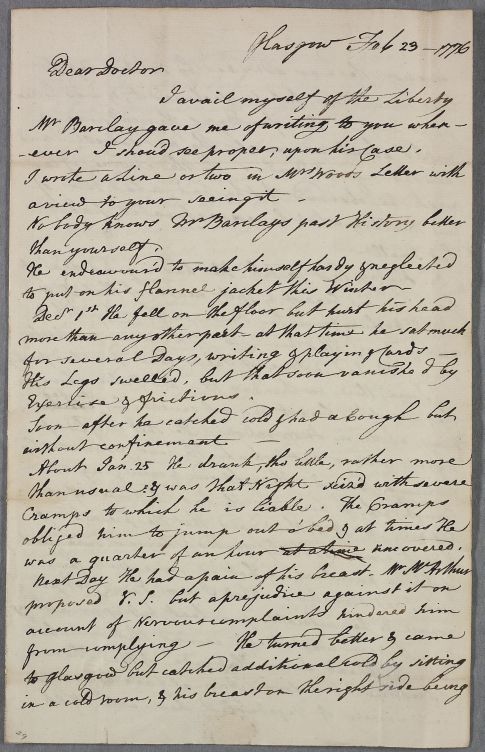 Glasgow Feb 23 - 1776
Dear Doctor
I avail myself of the Liberty
Mr Barclay gave me of writing to you when-
-ever I should see proper, upon his Case.
I wrote a Line or two in Mrs Woods Letter with
a view to your seeing it -
Nobody knows Mr Barclays past History better
than yourself.
He endeavour'd to make himself hardy & neglected
to put on his flannel jacket this Winter
Decr 1st He fell on the floor but hurt his head
more than any other part - at that time he sat much
for several Days, writing & playing Cards -
His Legs swelled, but that soon vanished by
Exercise & frictions.
Soon after he catched cold & had a Cough but
without confinement -
About Jan. 25 He drank, tho little, rather more
than usual & was that Night seized with severe
Cramps to which he is liable. The Cramps
obliged him to jump out o' bed & at times He
was a quarter of an hour at a time uncovered.
Next Day He had a pain of his breast. Mr McArthur
proposed V. S. but a prejudice against it on
account of Nervous complaints hindered him
from complying - He turned better & came
to Glasgow but catched additional cold by sitting
in a cold room, & his breast on the right side being